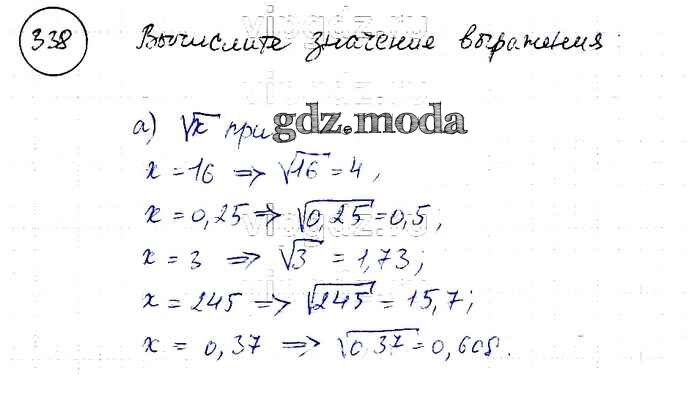 338 Вычислите значение выражения:
а) √x при gdz.moda
x = 16 => √16 = 4,
x = 0,25 => √0,25 = 0,5,
x = 3 => √3 = 1,73;
x = 245 => √245 = 15,7;
x = 0,37 => √0,37 = 0,608.